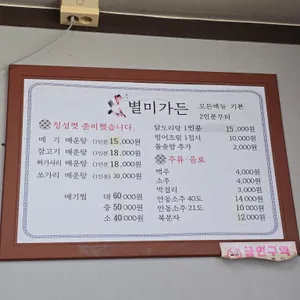 별미가든
모든메뉴 기본
2인분부터
정성껏 준비했습니다.
메기 매운탕 (1인분) 15,000원
잡고기 매운탕 (1인분) 18,000원
빠가사리 매운탕 (1인분) 18,000원
쏘가리 매운탕 (1인분) 30,000원
메기찜 대 60,000원
중 50,000원
소 40,000원
닭도리탕 1인분 15,000원
빙어조림 1접시 10,000원
돌솥밥 추가 2,000원
주류·음료
맥주 4,000원
소주 4,000원
막걸리 3,000원
안동소주 40도 14,000원
안동소주 21도 10,000원
복분자 12,000원
금연구역